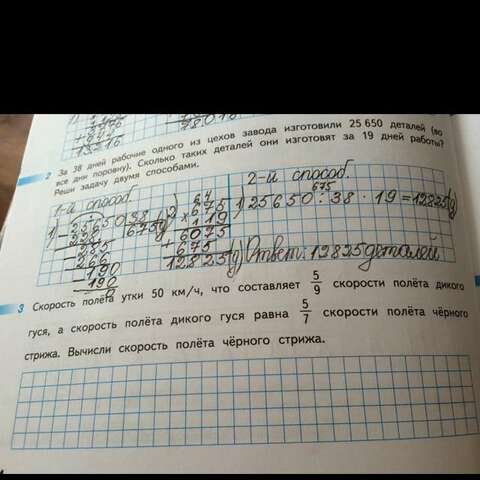 13216
78016
2 За 38 дней рабочие одного из цехов завода изготовили 25 650 деталей (во
все дни поровну). Сколько таких деталей они изготовят за 19 дней работы?
Реши задачу двумя способами.
1-й способ.
1) 25650 38
228 675(д)
285
266
190
190
0
64
2) 675
19
6075
675
12825(д)
2-й способ.
675
1) 25650 : 38 · 19 = 12825(д)
Ответ: 12825 деталей
3 Скорость полёта утки 50 км/ч, что составляет 5/9 скорости полёта дикого
гуся, а скорость полёта дикого гуся равна 5/7 скорости полёта чёрного
стрижа. Вычисли скорость полёта чёрного стрижа.